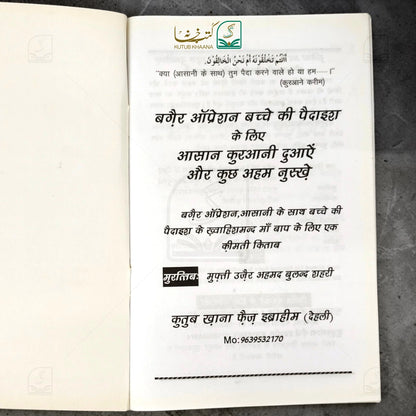 کتب خانہ
KUTUB KHAANA
ءَاَنْتُمْ تَخْلُقُوْنَهٗ اَمْ نَحْنُ الْخَالِقُوْنَ۔
"क्या (आसानी के साथ) तुम पैदा करने वाले हो या हम-----।"
(कुरआने करीम)
बग़ैर ऑप्रेशन बच्चे की पैदाइश
के लिए
आसान कुरआनी दुआऐं
और कुछ अहम नुस्ख़े
बग़ैर ऑप्रेशन,आसानी के साथ बच्चे की
पैदाइश के ख़्वाहिशमन्द माँ बाप के लिए एक
क़ीमती किताब
मुरत्तिब: मुफ़्ती उज़ैर अहमद बुलन्द शहरी
कुतुब ख़ाना फ़ैज़ इब्राहीम (देहली)
Mo:9639532170